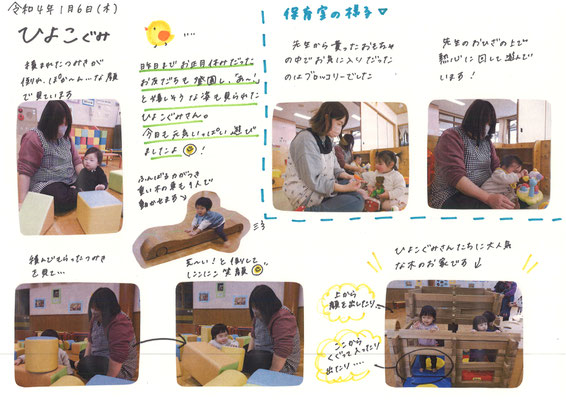 令和4年1月6日(木)
ひよこぐみ
積まれたつみきが
倒れ、ぽかーん…な顔
で見ています
昨日までお正月休みだった
お友だちも登園し、「あ〜!」
と嬉しそうな姿も見られた
ひよこぐみさん。
今日も元気いっぱい遊び
ましたよ!
ふんばる力がつき
重い木の車も1人で
動かせます
積んでもらったつみき
を見て…
え〜い!と倒して
にこにこ笑顔
保育室の様子♡
先生から貰ったおもちゃ
の中でお気に入りだった
のはブロッコリーでした
先生のおひざの上で
熱心に回して遊んで
います!
ひよこぐみさんたちに大人気
な木のお家です
上から
顔を出したり
ここから
くぐって入ったり
出たり…